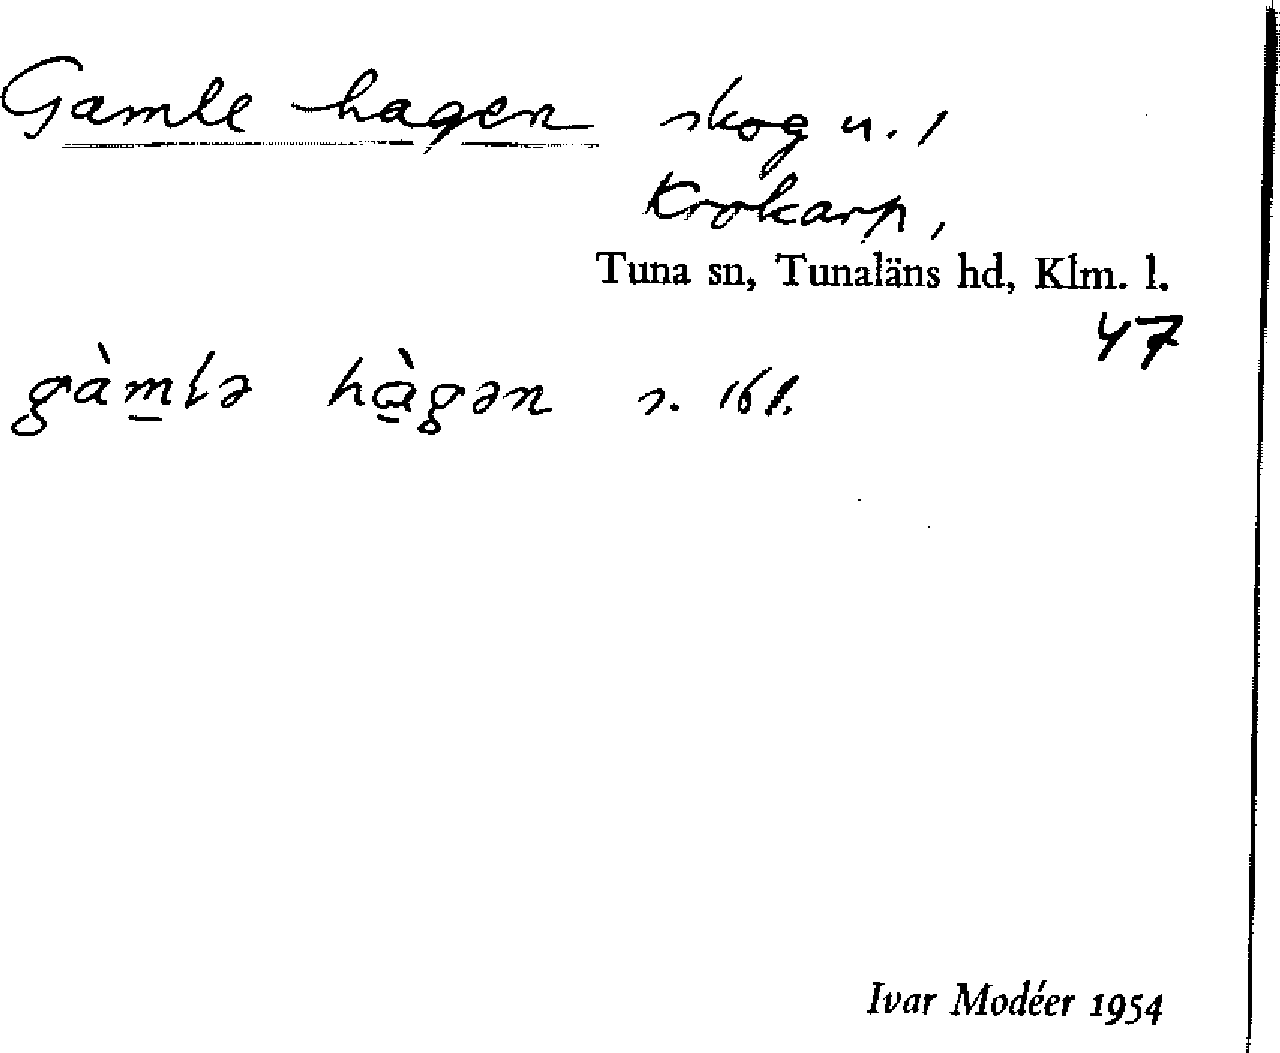 Gamle hagen skog n. /
Krokarp,
Tuna sn, Tunaläns hd, Klm. l.
47
gàm̲lə hɑ̲̀gən s. 16 l.
Ivar Modéer 1954